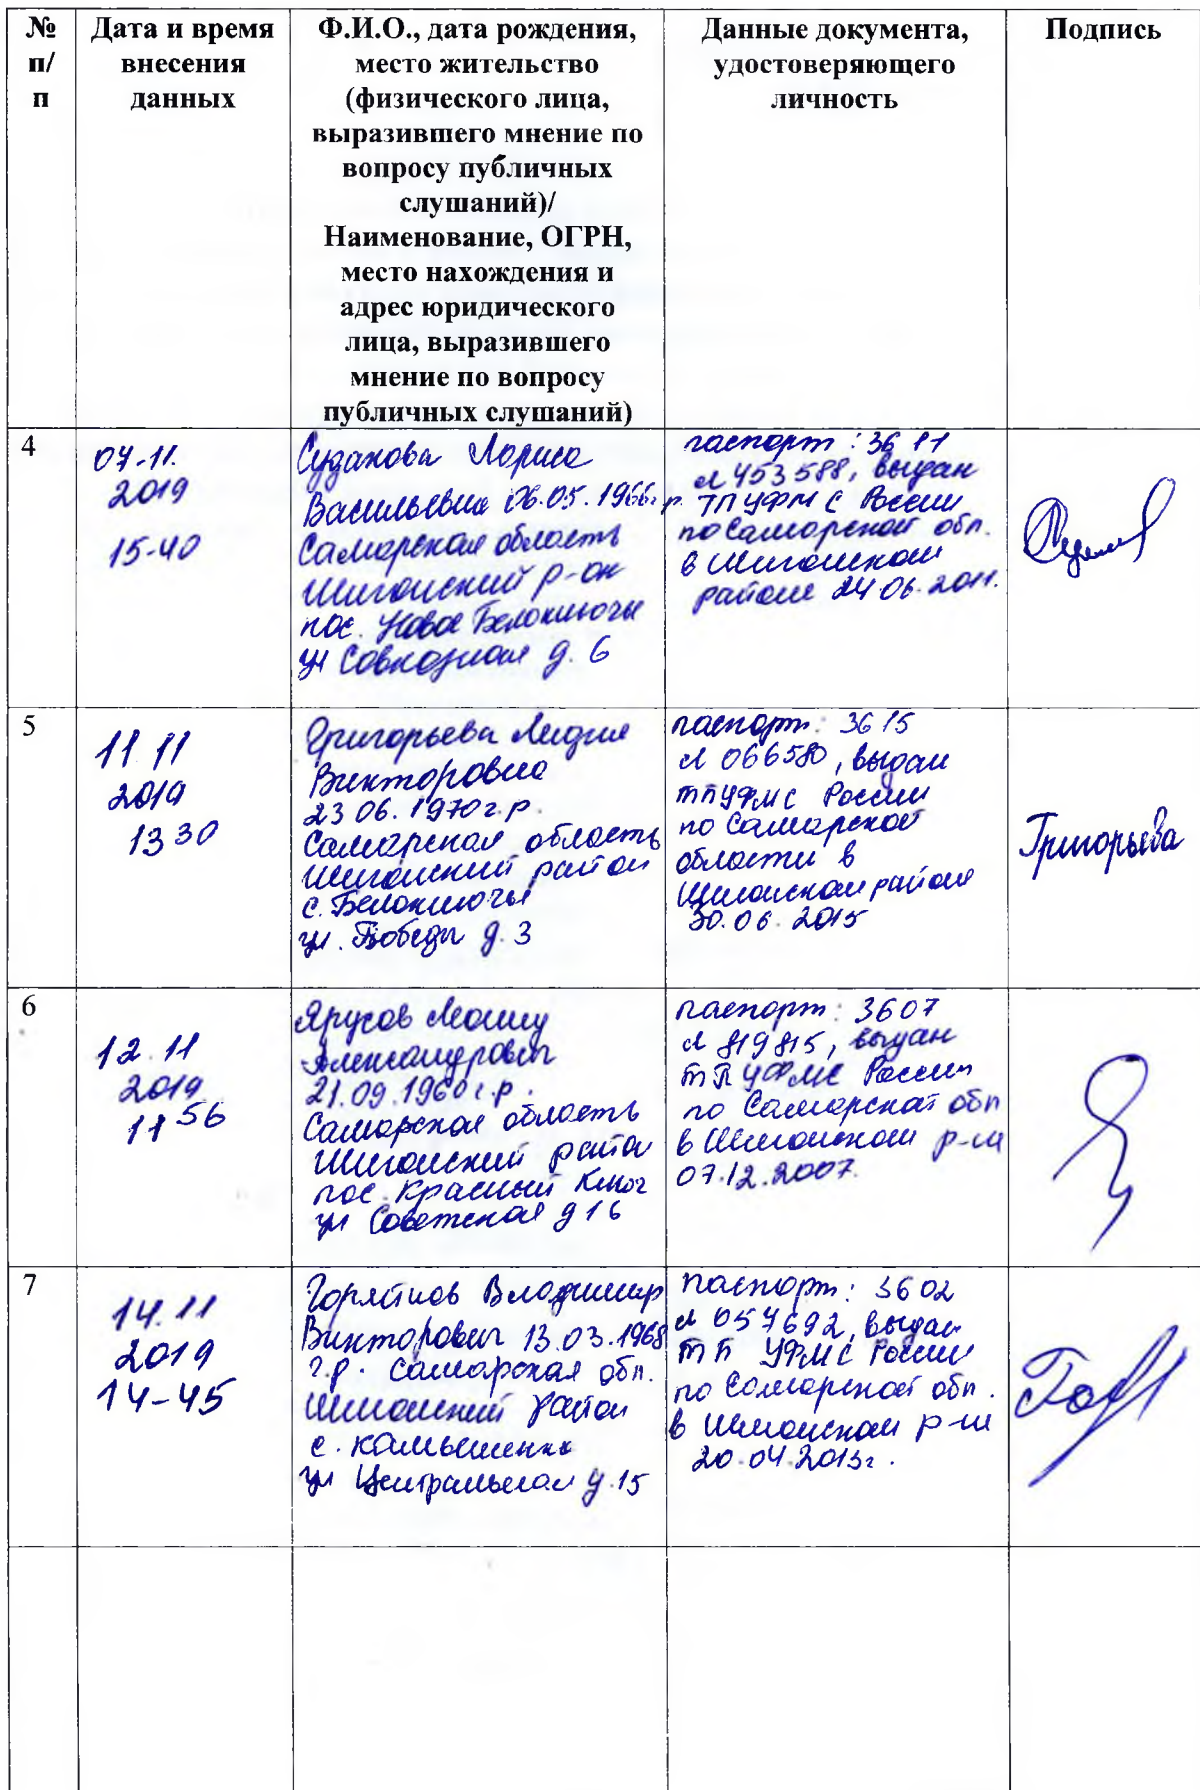 № п/п
Дата и время внесения данных
Ф.И.О., дата рождения,
место жительство
(физического лица,
выразившего мнение по
вопросу публичных
слушаний)/
Наименование, ОГРН,
место нахождения и
адрес юридического
лица, выразившего
мнение по вопросу
публичных слушаний)
Данные документа,
удостоверяющего
личность
Подпись
4
07-11.
2019
15-40
Судакова Лариса
Васильевна 06.05.1966г.р.
Самарская область
Шигонский р-он
пос. Новые Белоключи
ул Совхозная д. 6
паспорт: 36 11
№ 453588, выдан
ТП УФМС России
по Самарской обл.
в Шигонском
районе 24.06.2011.
5
11 11
2019
13 30
Григорьева Лидия
Викторовна
23 06. 1970г.р.
Самарская область
Шигонский район
с. Белоключи
ул. Победы д. 3
паспорт: 36 15
№ 066580, выдан
ТП УФМС России
по Самарской
области в
Шигонском районе
30.06.2015
Григорьева
6
12.11
2019
11 56
Ярусов
Александрович
21.09.1960г.р.
Самарская область
Шигонский район
пос. Красный Ключ
ул Советская д 16
паспорт: 3607
№ 819815, выдан
ТП УФМС России
по Самарской обл
в Шигонском р-не
07.12.2007.
7
14.11
2019
14-45
Горятнов Владимир
Викторович 13.03.1968
г.р. Самарская обл.
Шигонский район
с. Камышенка
ул Центральная д.15
паспорт: 3602
№ 057692, выдан
ТП УФМС России
по Самарской обл.
в Шигонском р-не
20.04.2013г.